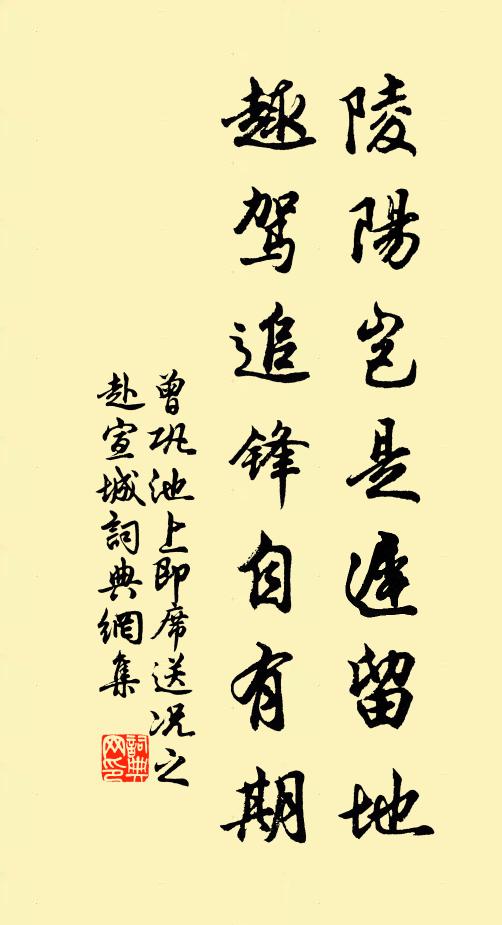 陵陽豈是遲留地
趣駕追鋒自有期
曾巩池上即席送况之
赴宣城詞典網集
詞典网印